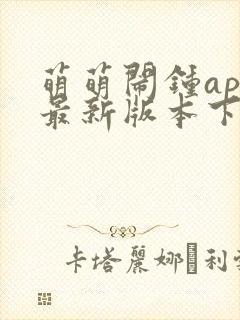 萌萌鬧鍾ap
最新版本下
卡塔麗娜·利